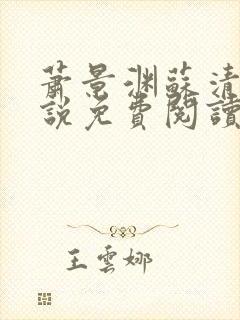 蕭景淵蘇清
說免費閱讀
王雲娜